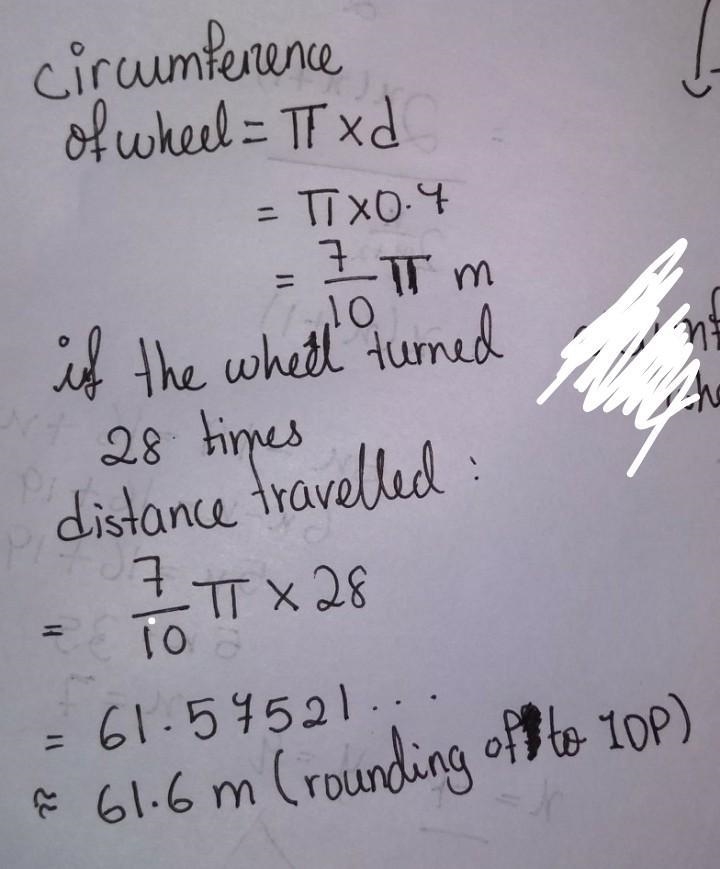 circumference
of wheel = π × d
= π × 0.7
= 7/10 π m
if the wheel turned
28 times
distance travelled :
= 7/10 π × 28
= 61.57521...
≈ 61.6 m (rounding of to 1DP)